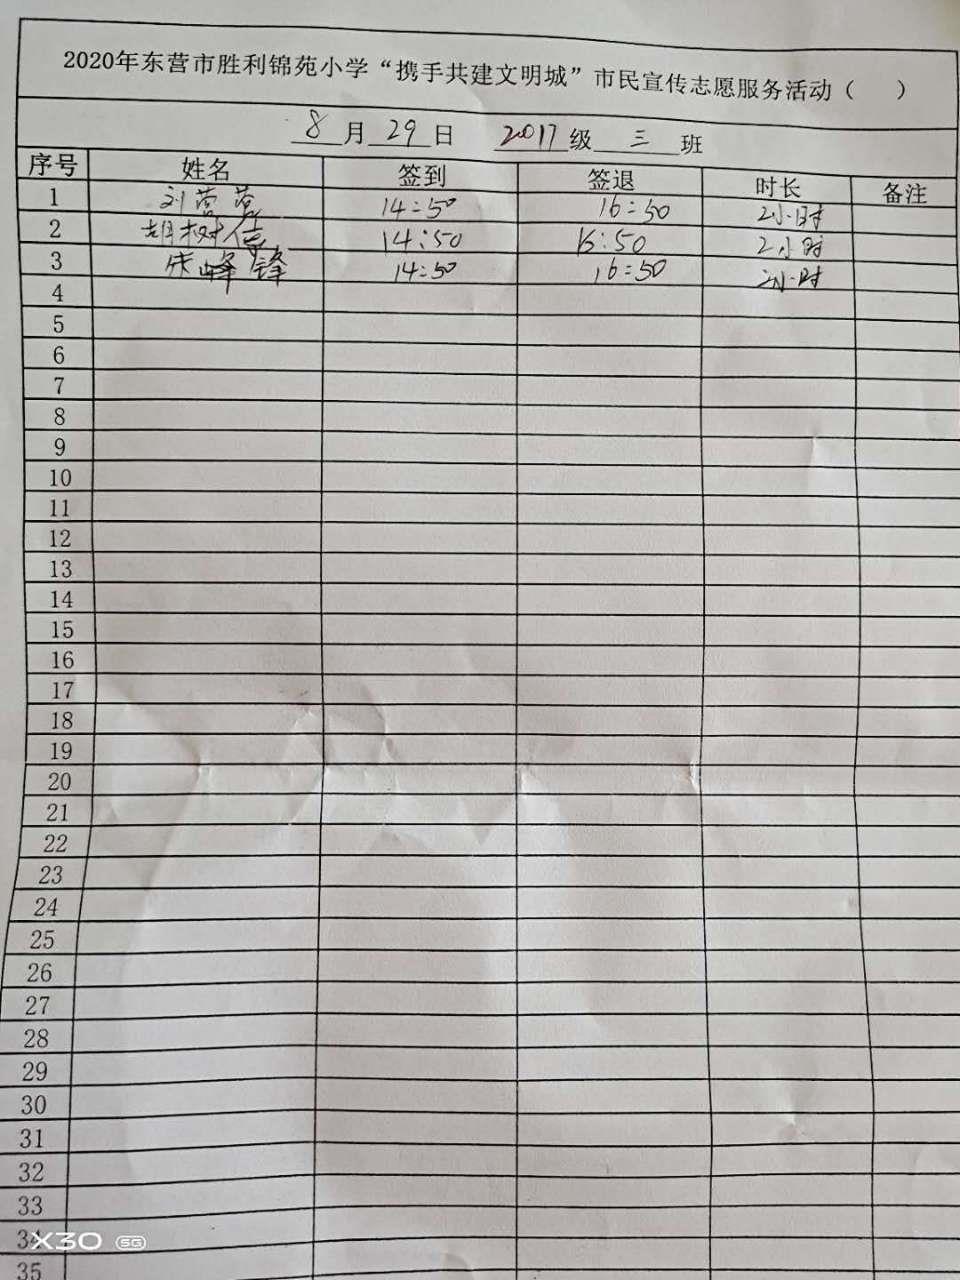 2020年东营市胜利锦苑小学“携手共建文明城”市民宣传志愿服务活动（ ）
8月29日 2017级 三 班
序号 姓名 签到 签退 时长 备注
1 刘营营 14:50 16:50 2小时
2 胡树信 14:50 16:50 2小时
3 朱峰锋 14:50 16:50 2小时
4
5
6
7
8
9
10
11
12
13
14
15
16
17
18
19
20
21
22
23
24
25
26
27
28
29
30
31
32
33
34
X30 5G
35